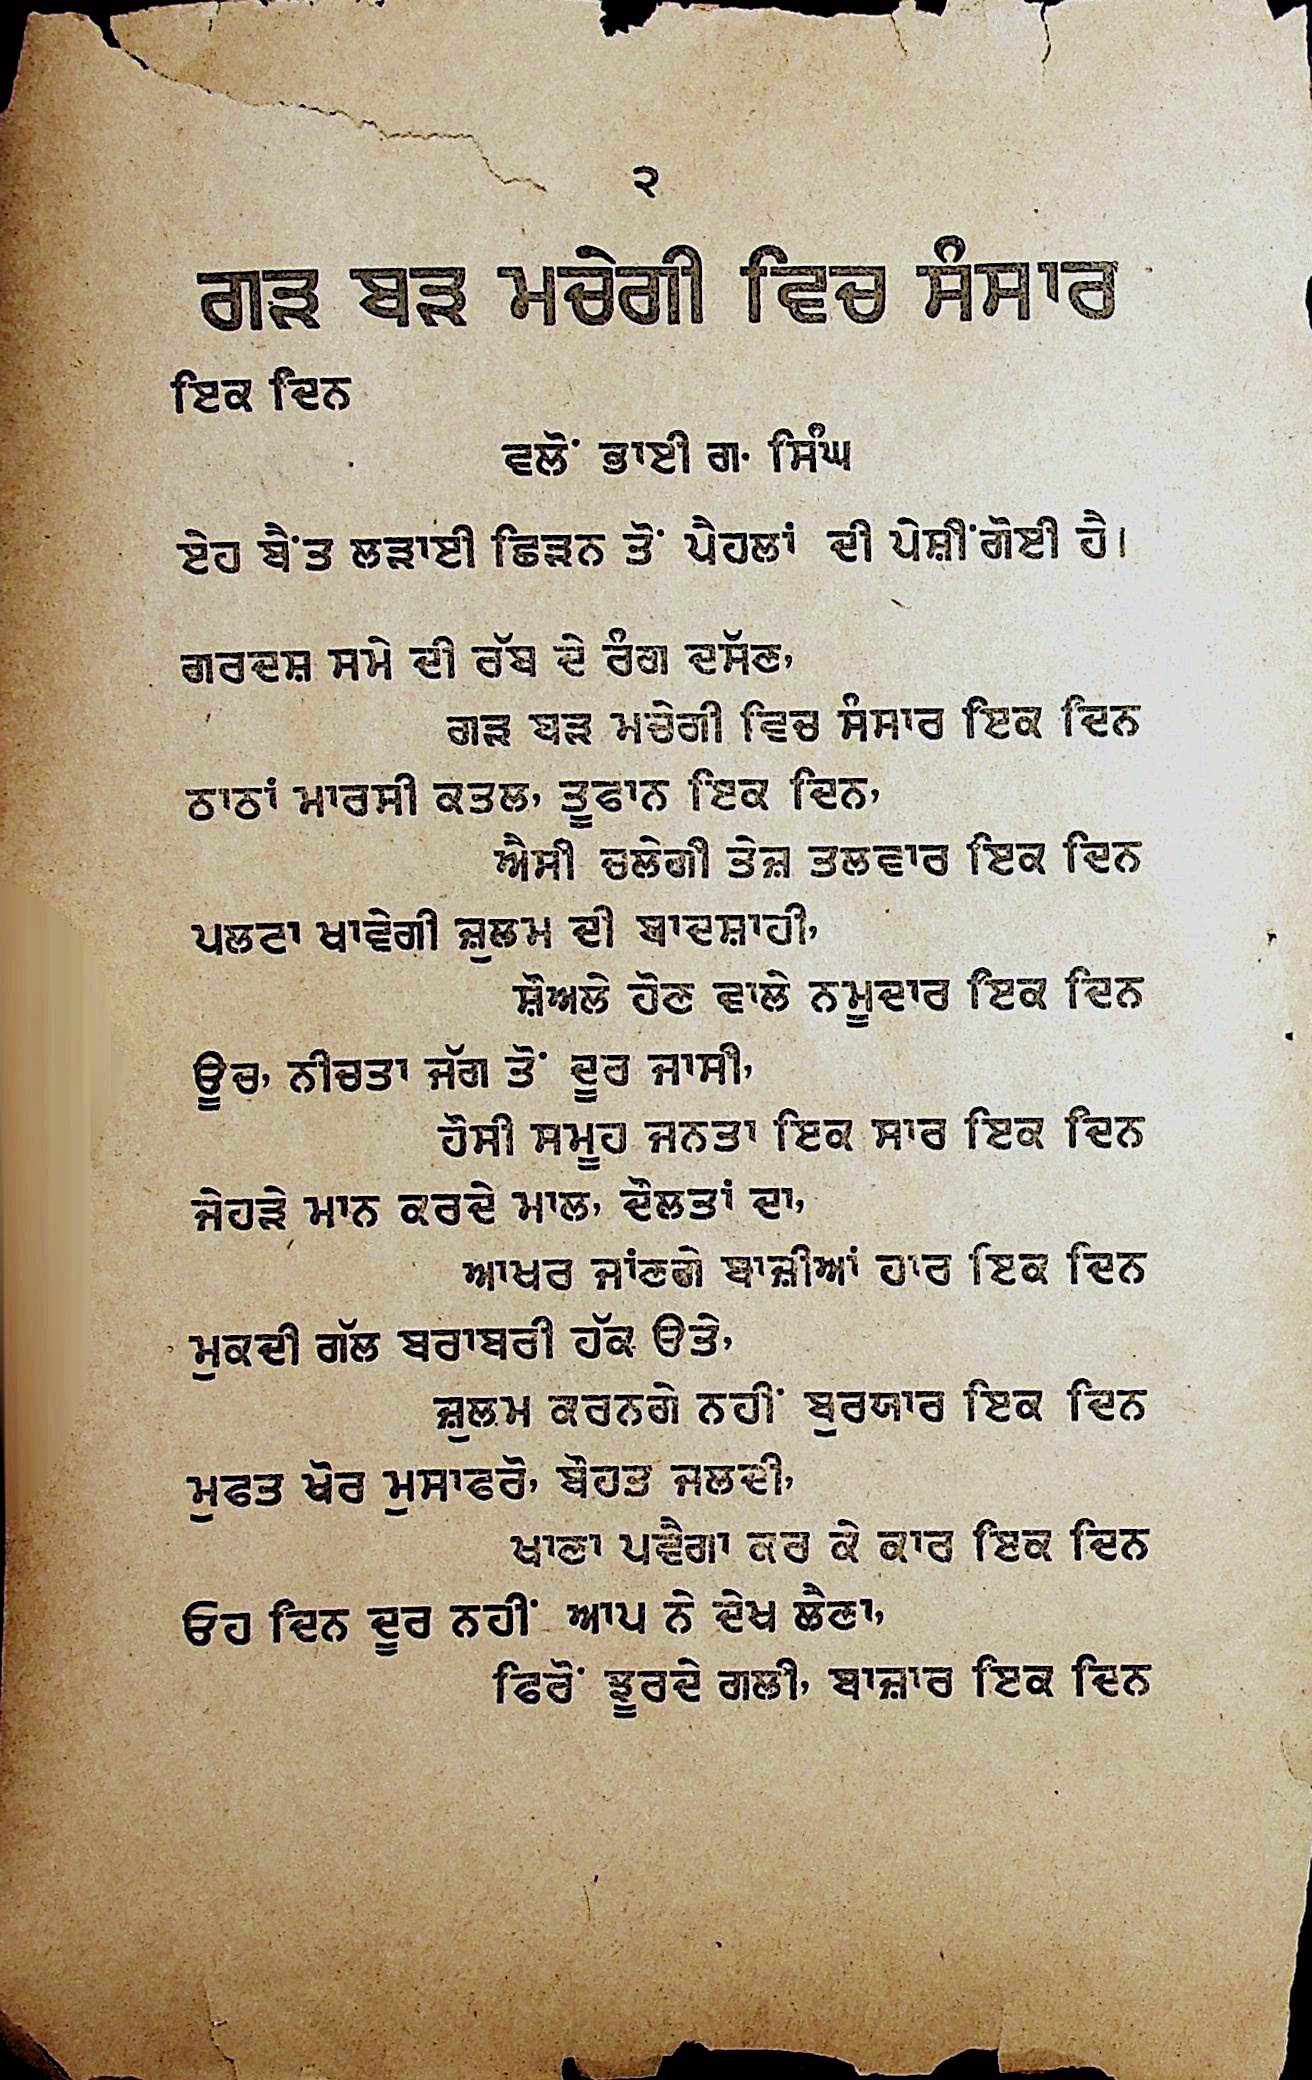 ੨
ਗੜ ਬੜ ਮਚੇਗੀ ਵਿਚ ਸੰਸਾਰ
ਇਕ ਦਿਨ
ਵਲੋਂ ਭਾਈ ਗ. ਸਿੰਘ
ਏਹ ਬੈਂਤ ਲੜਾਈ ਛਿੜਨ ਤੋਂ ਪੈਹਲਾਂ ਦੀ ਪੇਸ਼ੀਂਗੋਈ ਹੈ।
ਗਰਦਸ਼ ਸਮੇ ਦੀ ਰੱਬ ਦੇ ਰੰਗ ਦਸੱਣ,
ਗੜ ਬੜ ਮਚੇਗੀ ਵਿਚ ਸੰਸਾਰ ਇਕ ਦਿਨ
ਠਾਠਾਂ ਮਾਰਸੀ ਕਤਲ, ਤੂਫਾਨ ਇਕ ਦਿਨ,
ਐਸੀ ਚਲੇਗੀ ਤੇਜ਼ ਤਲਵਾਰ ਇਕ ਦਿਨ
ਪਲਟਾ ਖਾਵੇਗੀ ਜ਼ੁਲਮ ਦੀ ਬਾਦਸ਼ਾਹੀ,
ਸ਼ੋਅਲੇ ਹੋਣ ਵਾਲੇ ਨਮੂਦਾਰ ਇਕ ਦਿਨ
ਊਚ, ਨੀਚਤਾ ਜੱਗ ਤੋਂ ਦੂਰ ਜਾਸੀ,
ਹੋਸੀ ਸਮੂਹ ਜਨਤਾ ਇਕ ਸਾਰ ਇਕ ਦਿਨ
ਜੇਹੜੇ ਮਾਨ ਕਰਦੇ ਮਾਲ, ਦੌਲਤਾਂ ਦਾ,
ਆਖਰ ਜਾਂਣਗੇ ਬਾਜ਼ੀਆਂ ਹਾਰ ਇਕ ਦਿਨ
ਮੁਕਦੀ ਗੱਲ ਬਰਾਬਰੀ ਹੱਕ ੳਤੇ,
ਜ਼ੁਲਮ ਕਰਨਗੇ ਨਹੀਂ ਬੁਰਯਾਰ ਇਕ ਦਿਨ
ਮੁਫਤ ਖੋਰ ਮੁਸਾਫਰੋ, ਬੋਹਤ ਜਲਦੀ,
ਖਾਣਾ ਪਵੈਗਾ ਕਰ ਕੇ ਕਾਰ ਇਕ ਦਿਨ
ਓਹ ਦਿਨ ਦੂਰ ਨਹੀਂ ਆਪ ਨੇ ਦੇਖ ਲੈਣਾ,
ਫਿਰੋਂ ਝੂਰਦੇ ਗਲੀ, ਬਾਜ਼ਾਰ ਇਕ ਦਿਨ